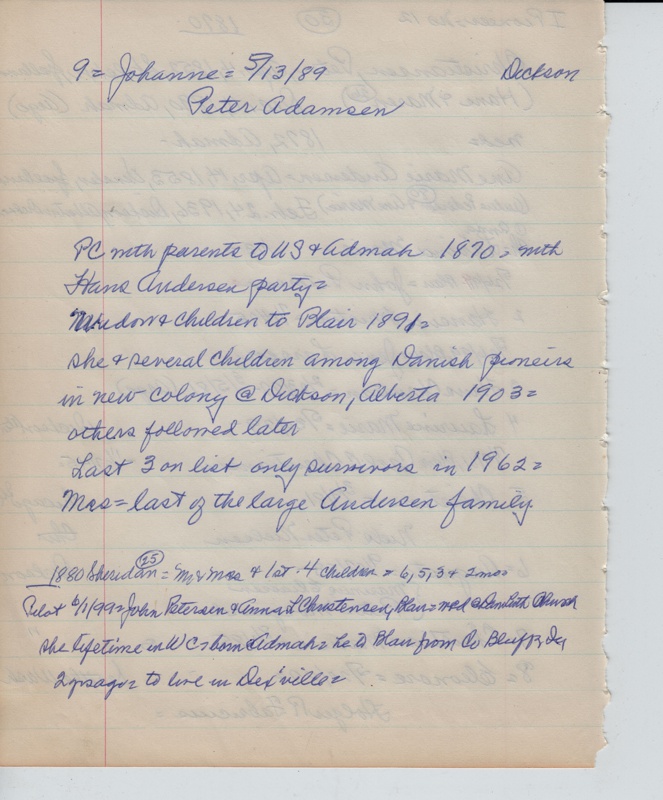 9 = Johanne = 5/13/89 Dickson
Peter Adamsen
PC with parents to US & Admah 1870 = with
Hans Andersen party =
Widow & children to Blair 1891 =
she & several children among Danish pioneirs
in new colony @ Dickson, Alberta 1903 =
others followed later
Last 3 on list only survivors in 1962 =
Mrs = last of the large Andersen family
1880 Sheridan (25) = Mr & Mrs & 1st 4 children = 6, 5, 3 & 2 mos
Pilot 6/1/99 = John Petersen & Anna L Christensen, Blair = med @ Dan Luth Church
she lifetime in WC = born Admah = he to Blair from Co Bluffs, Ia
2 yrs ago = to live in Dex'ville =